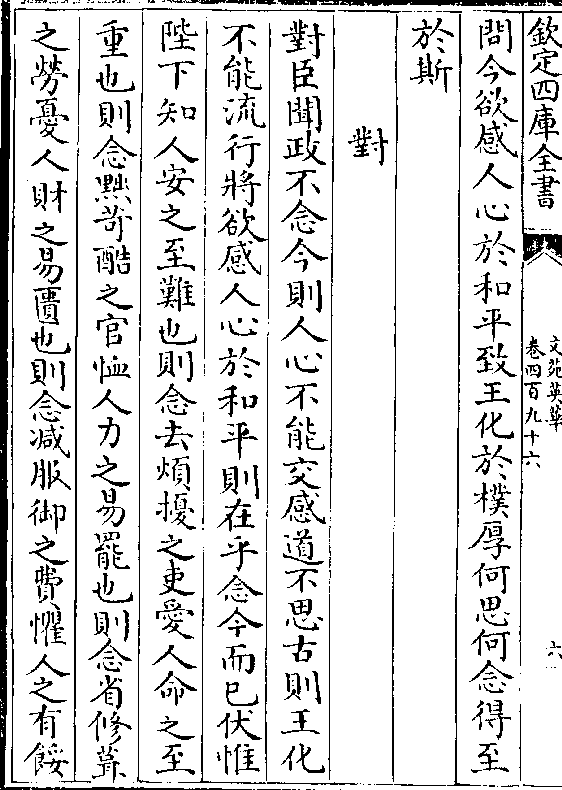 欽定四庫全書
文苑英華
卷四百九十六
六
問今欲感人心於和平致王化於樸厚何思何念得至
於斯
對
對臣聞政不念今則人心不能交感道不思古則王化
不能流行將欲感人心於和平則在乎念今而已伏惟
陛下知人安之至難也則念去煩擾之吏愛人命之至
重也則念黜苛酷之官恤人力之易罷也則念省修葺
之勞憂人財之易匱也則念减服御之費懼人之有餒